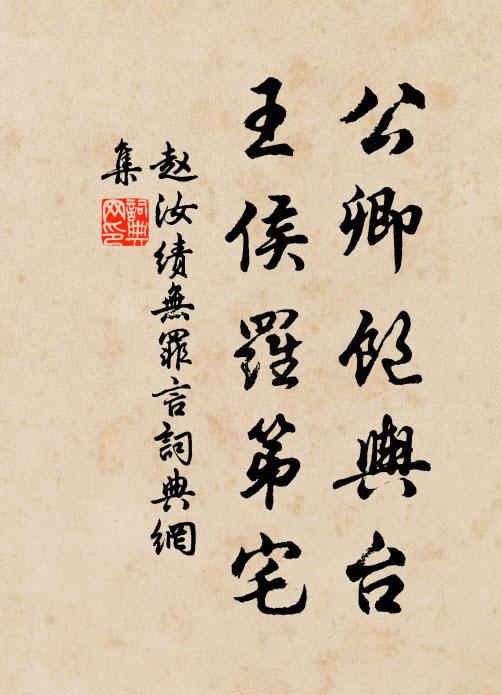 公卿飽輿台
王侯羅第宅
赵汝績無罪言詞典網
集
詞典網印